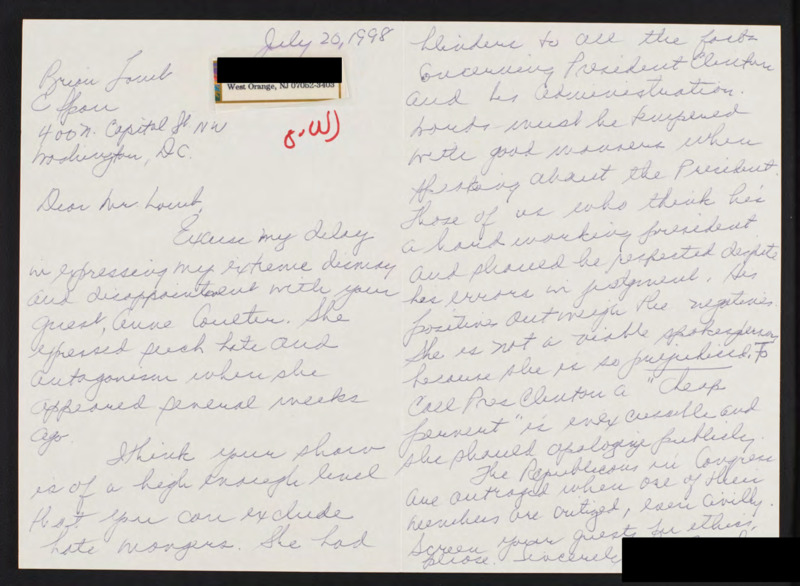 July 20, 1998
West Orange, NJ 07052-3405
Brian Lamb
C Span
400 N. Capital St NW
Washington, D.C.
o-W)
Dear Mr Lamb,
Excuse my delay
in expressing my extreme dismay
and disappointment with your
guest, Anne Coulter. She
expressed such hate and
antagonism when she
appeared several weeks
ago.
I think your show
is of a high enough level
that you can exclude
hate mongers. She had
blinders to all the facts
concerning President Clinton
and his administration.
Words must be tempered
with good manners when
speaking about the President.
Those of us who think he's
a hard working president
and should be respected despite
his errors in judgment. His
positives outweigh the negatives.
She is not a viable spokesperson
because she is so prejudiced. To
call Pres Clinton a "cheap
pervert" is inexcusable and
she should apologize publicly.
The Republicans in Congress
are outraged when one of their
members are critized, even civilly.
Screen your guests for ethics,
please. Sincerely